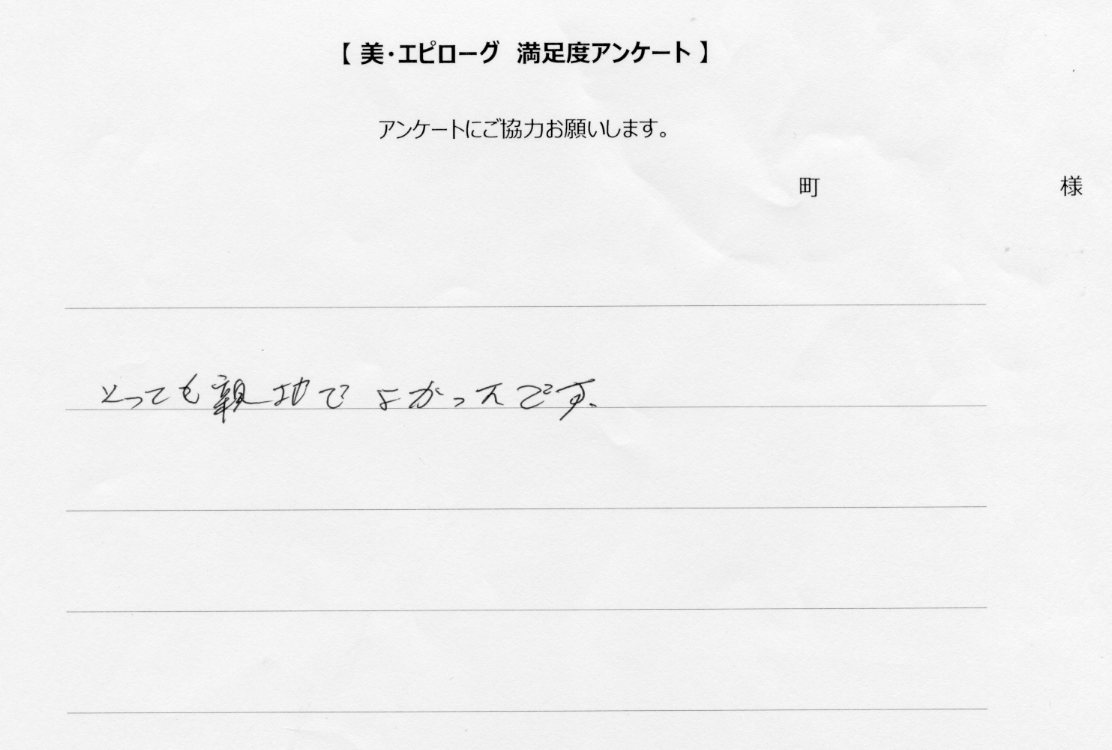 【 美・エピローグ 満足度アンケート 】
アンケートにご協力お願いします。
町 様
とっても親切でよかったです。